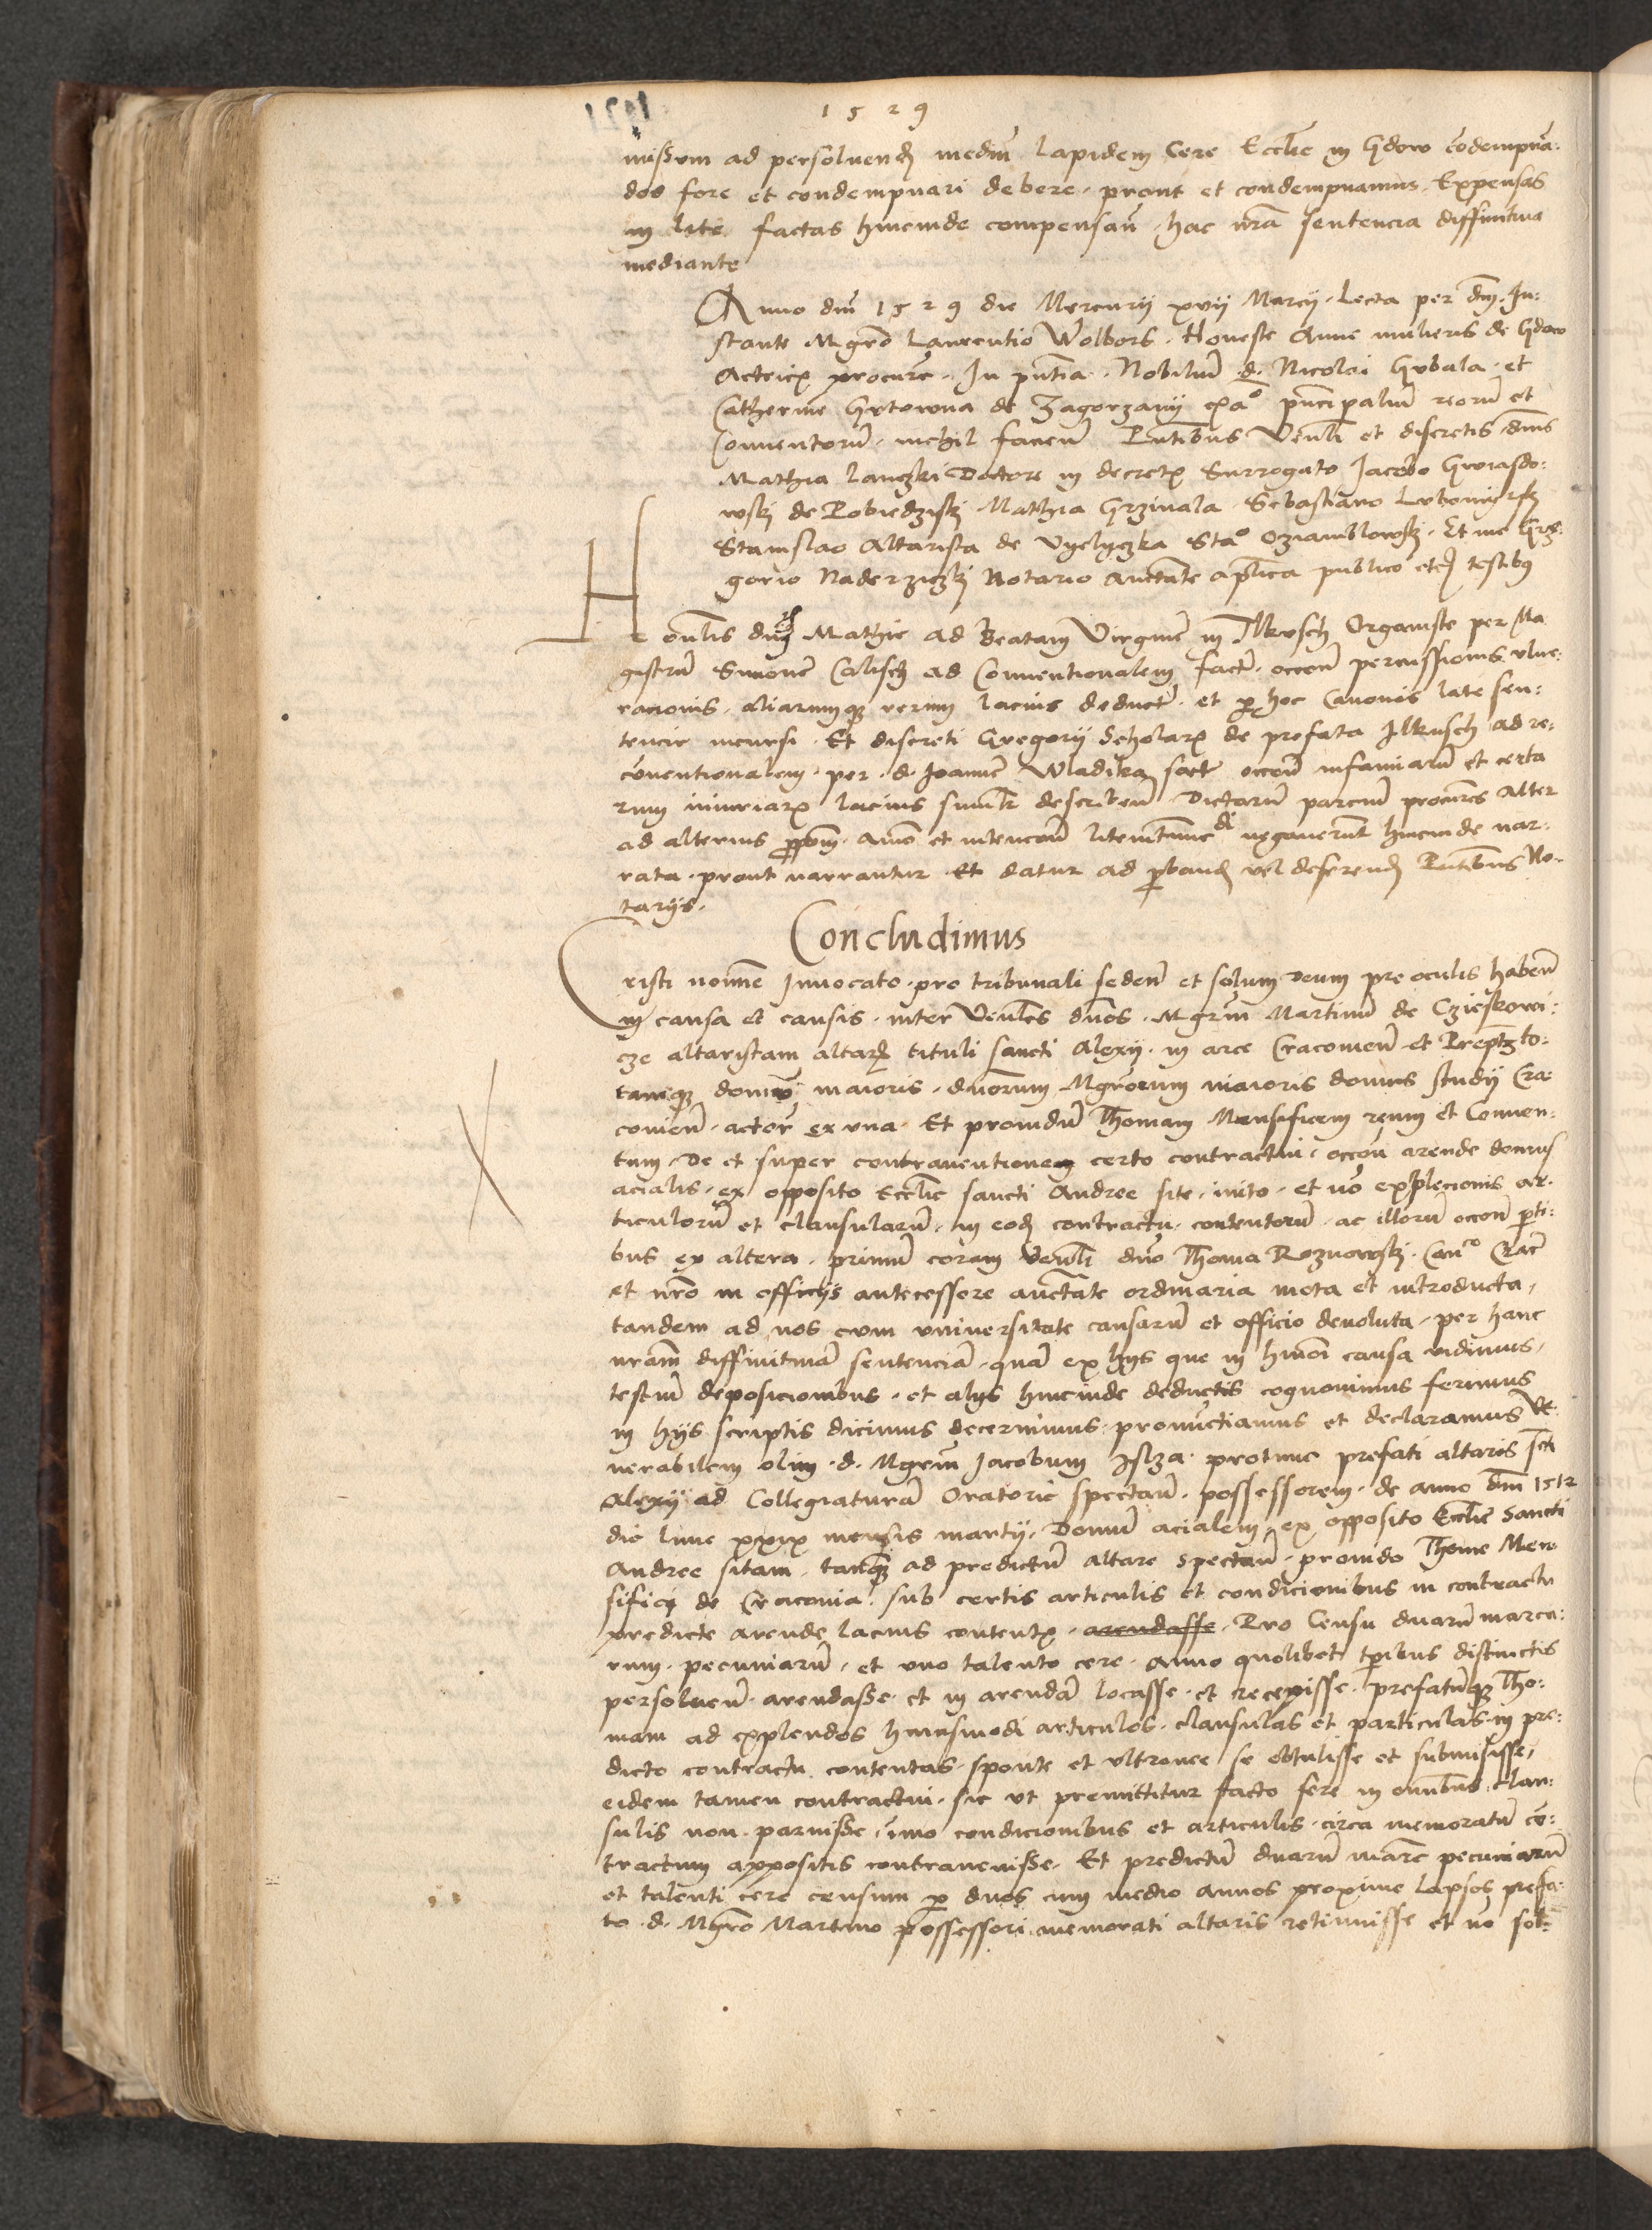 1529
missum ad persoluend medium lapidem Cere Ecclie in Gdow codempnã:
dos fore et condempnari debere, prout et condempnamus, Expensas
in lite factas hincinde compensan̄, hac nr̄a sentencia diffinitiua
mediante
Anno dnī 1529 die Mercurii xvii Marcij. Lecta per dm̄. In:
stante Mgro Laurentio Wolbors. Honeste Anne mulieris de Gdow
Actricis procure. In pntia. Nobilium d. Nicolai Gubala et
Catherine de Zagorzany exaᵒ principalium reorum et
Conuentorum, nichil facien̄ Pntibus Venli et discretis dnis
Mathia Lanczki Doctore in decretis Surrogato Jacobo
wski de Pobiedziski Mathia Grzimala. Sebastiano
Stanislao Altarista de Vyelyczka Staᵒ. Et me Gre:
gorio Naderziczki Notario auctate aplica publico etc testibus
Honlis dni Mathie ad Beatam Virginem in Ilkusch Organiste per Ma
gistrum Simonem Calisch ad Conuentionalem fact. occon̄ percussionis, vlne:
racionis, aliarumque rerum lacius deduct. et per hoc Canonis late sen:
tencie incursi. Et discreti Gregorii Scholaris de prefata Ilkusch ad re:
conuentionalem, per. d. Joannem Wladika fact occon̄ infamiarum et certa
rum iniuriarum lacius simili describen̄ Dictarum parcium procures Alter
ad alterius ppom. animo et intencone litemtunc di negauerunt hincinde nar:
rata, prout narrantur. Et datur ad pband vel deferend Pntibus No-
tariis.
Concludimus
Cristi nomine Inuocato, pro tribunali seden̄ et solum Deum pre oculis haben̄
in causa et causis, inter Venles dnos. Mgrum Martinum de Czieskowi:
cze altaristam altaris tituli sancti Alexii, in arce Cracouien̄ et
tamque domus maioris, dnorum Mgrorum maioris domus studii Cra:
couien̄. actor̄ ex vna. Et prouidum Thomam Mensificem reum et Conuen:
tum, De et super contrauentionem certo contractui, occon̄ arende domus
acialis, ex opposito Ecclie sancti Andree site, inito, et nō explecionis ar:
ticulorum et clausularum, in eod contractu, contentorum, ac illorum occon̄ pti:
bus ex altera. primum coram Venli dno Thoma Roznowski. Canᶜᵒ Crac̄
et nro in officiis antecessore auctate ordinaria mota et introducta,
tandem ad nos cum vniuersitate causarum et officio deuoluta, per hanc
nram diffinitiuam sentenciam, quam ex hys que in hmoi causa vidimus,
testium deposicionibus, et alys hincinde deductis cognouimus ferimus
in hys scriptis dicimus decernimus, pronunctiamus et declaramus Ve:
nerabilem olim. d. Mgrum Jacobum Islza protunc prefati altaris scti
Alexii ad Collegiaturam Oratorie spectan̄. possessorem, de anno dni 1512
die lune xxix mensis martii, Domum acialem, ex opposito Ecclie Sancti
Andree sitam, tamque ad predictum altare spectan̄, prouido Thome Men
sifici de Cracouia, sub certis articulis et condicionibus in contractu
predicte arende lacius contentis, arendasse. Pro Censu duarum marca:
rum, pecuniarum, et vno talento cere, anno quolibet, tpibus distinctis
persoluen̄. arendasse, et in arendam locasse, et recepisse. prefatumque Tho:
mam ad explendos huiusmodi articulos, clausulas et particulas, in pre:
dicto contractu contentas, sponte et vltronee se obtulisse et submisisse,
eidem tamen contractui, sic vt premittitur facto fere in omnibus clau:
sulis non paruisse, imo condicionibus et articulis, circa memoratum cō:
tractum appositis contrauenisse. Et predictum duarum marc̄ pecuniarum
et talenti cere censum p duos cum medio annos proxime lapsos prefa:
to. d. Mgro Martino possessori memorati altaris retinuisse et nō sol: